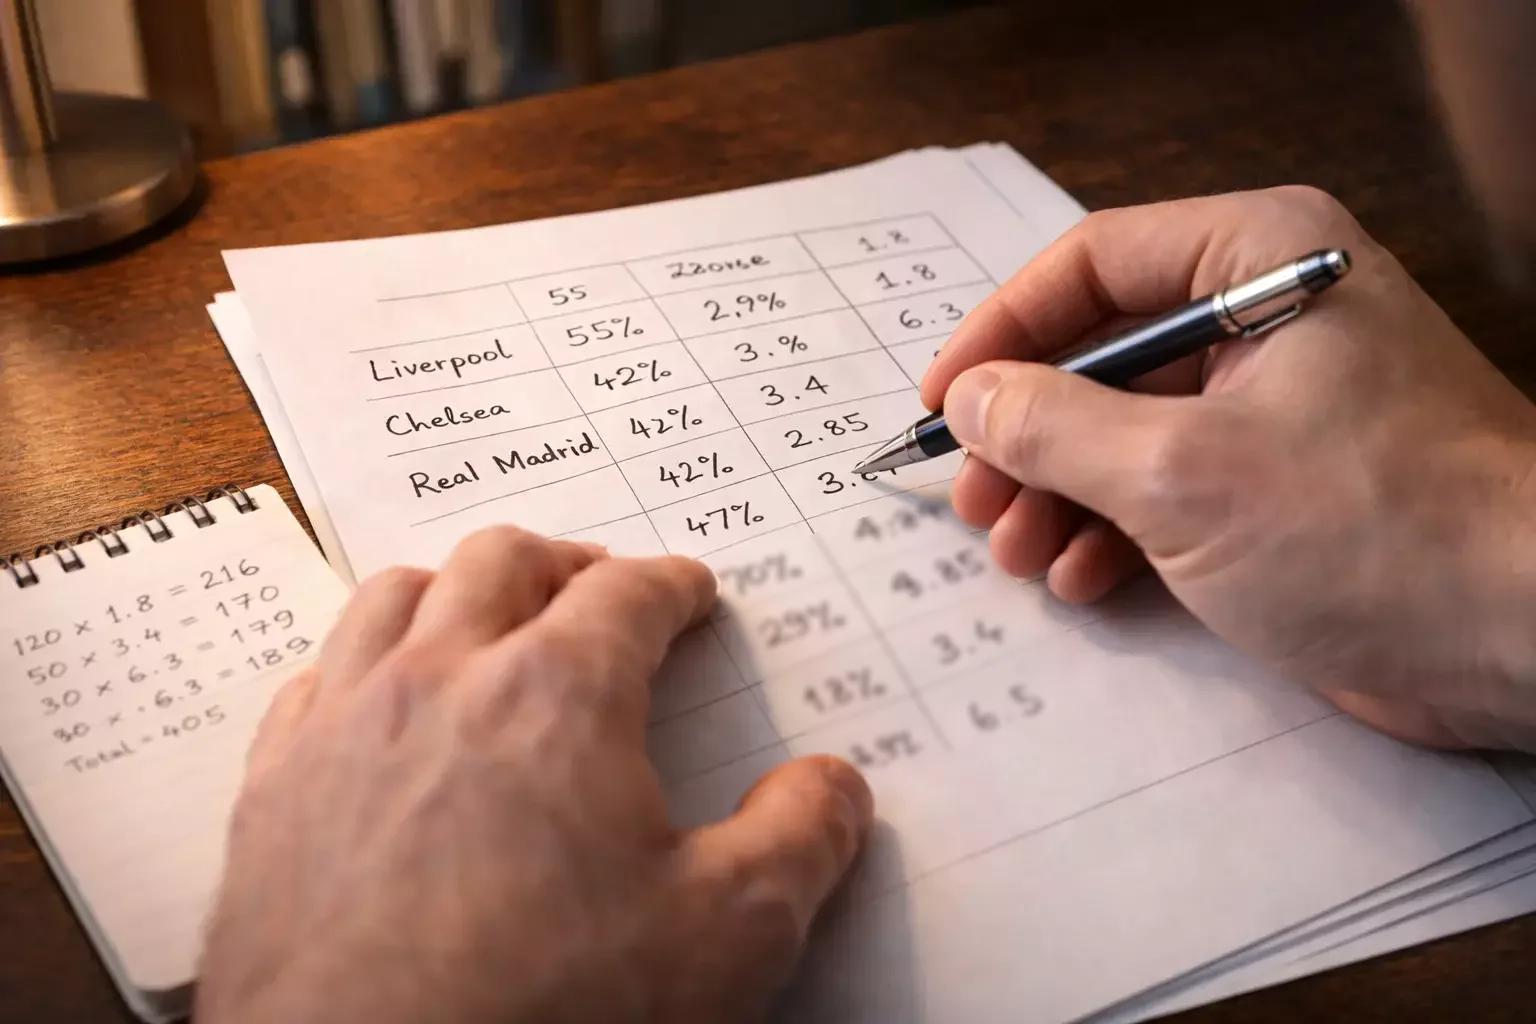 55 Zzorse 1.8
55% 2,9% 1.8
Liverpool 42% 3.% 6.3
Chelsea 42% 3.4
Real Madrid 42% 2.85
47%
70%
29% 4.85
18% 3.4
6.5
120 × 1.8 = 216
50 × 3.4 = 170
30 × 6.3 = 179
30 × · 6.3 = 189
Total - 405